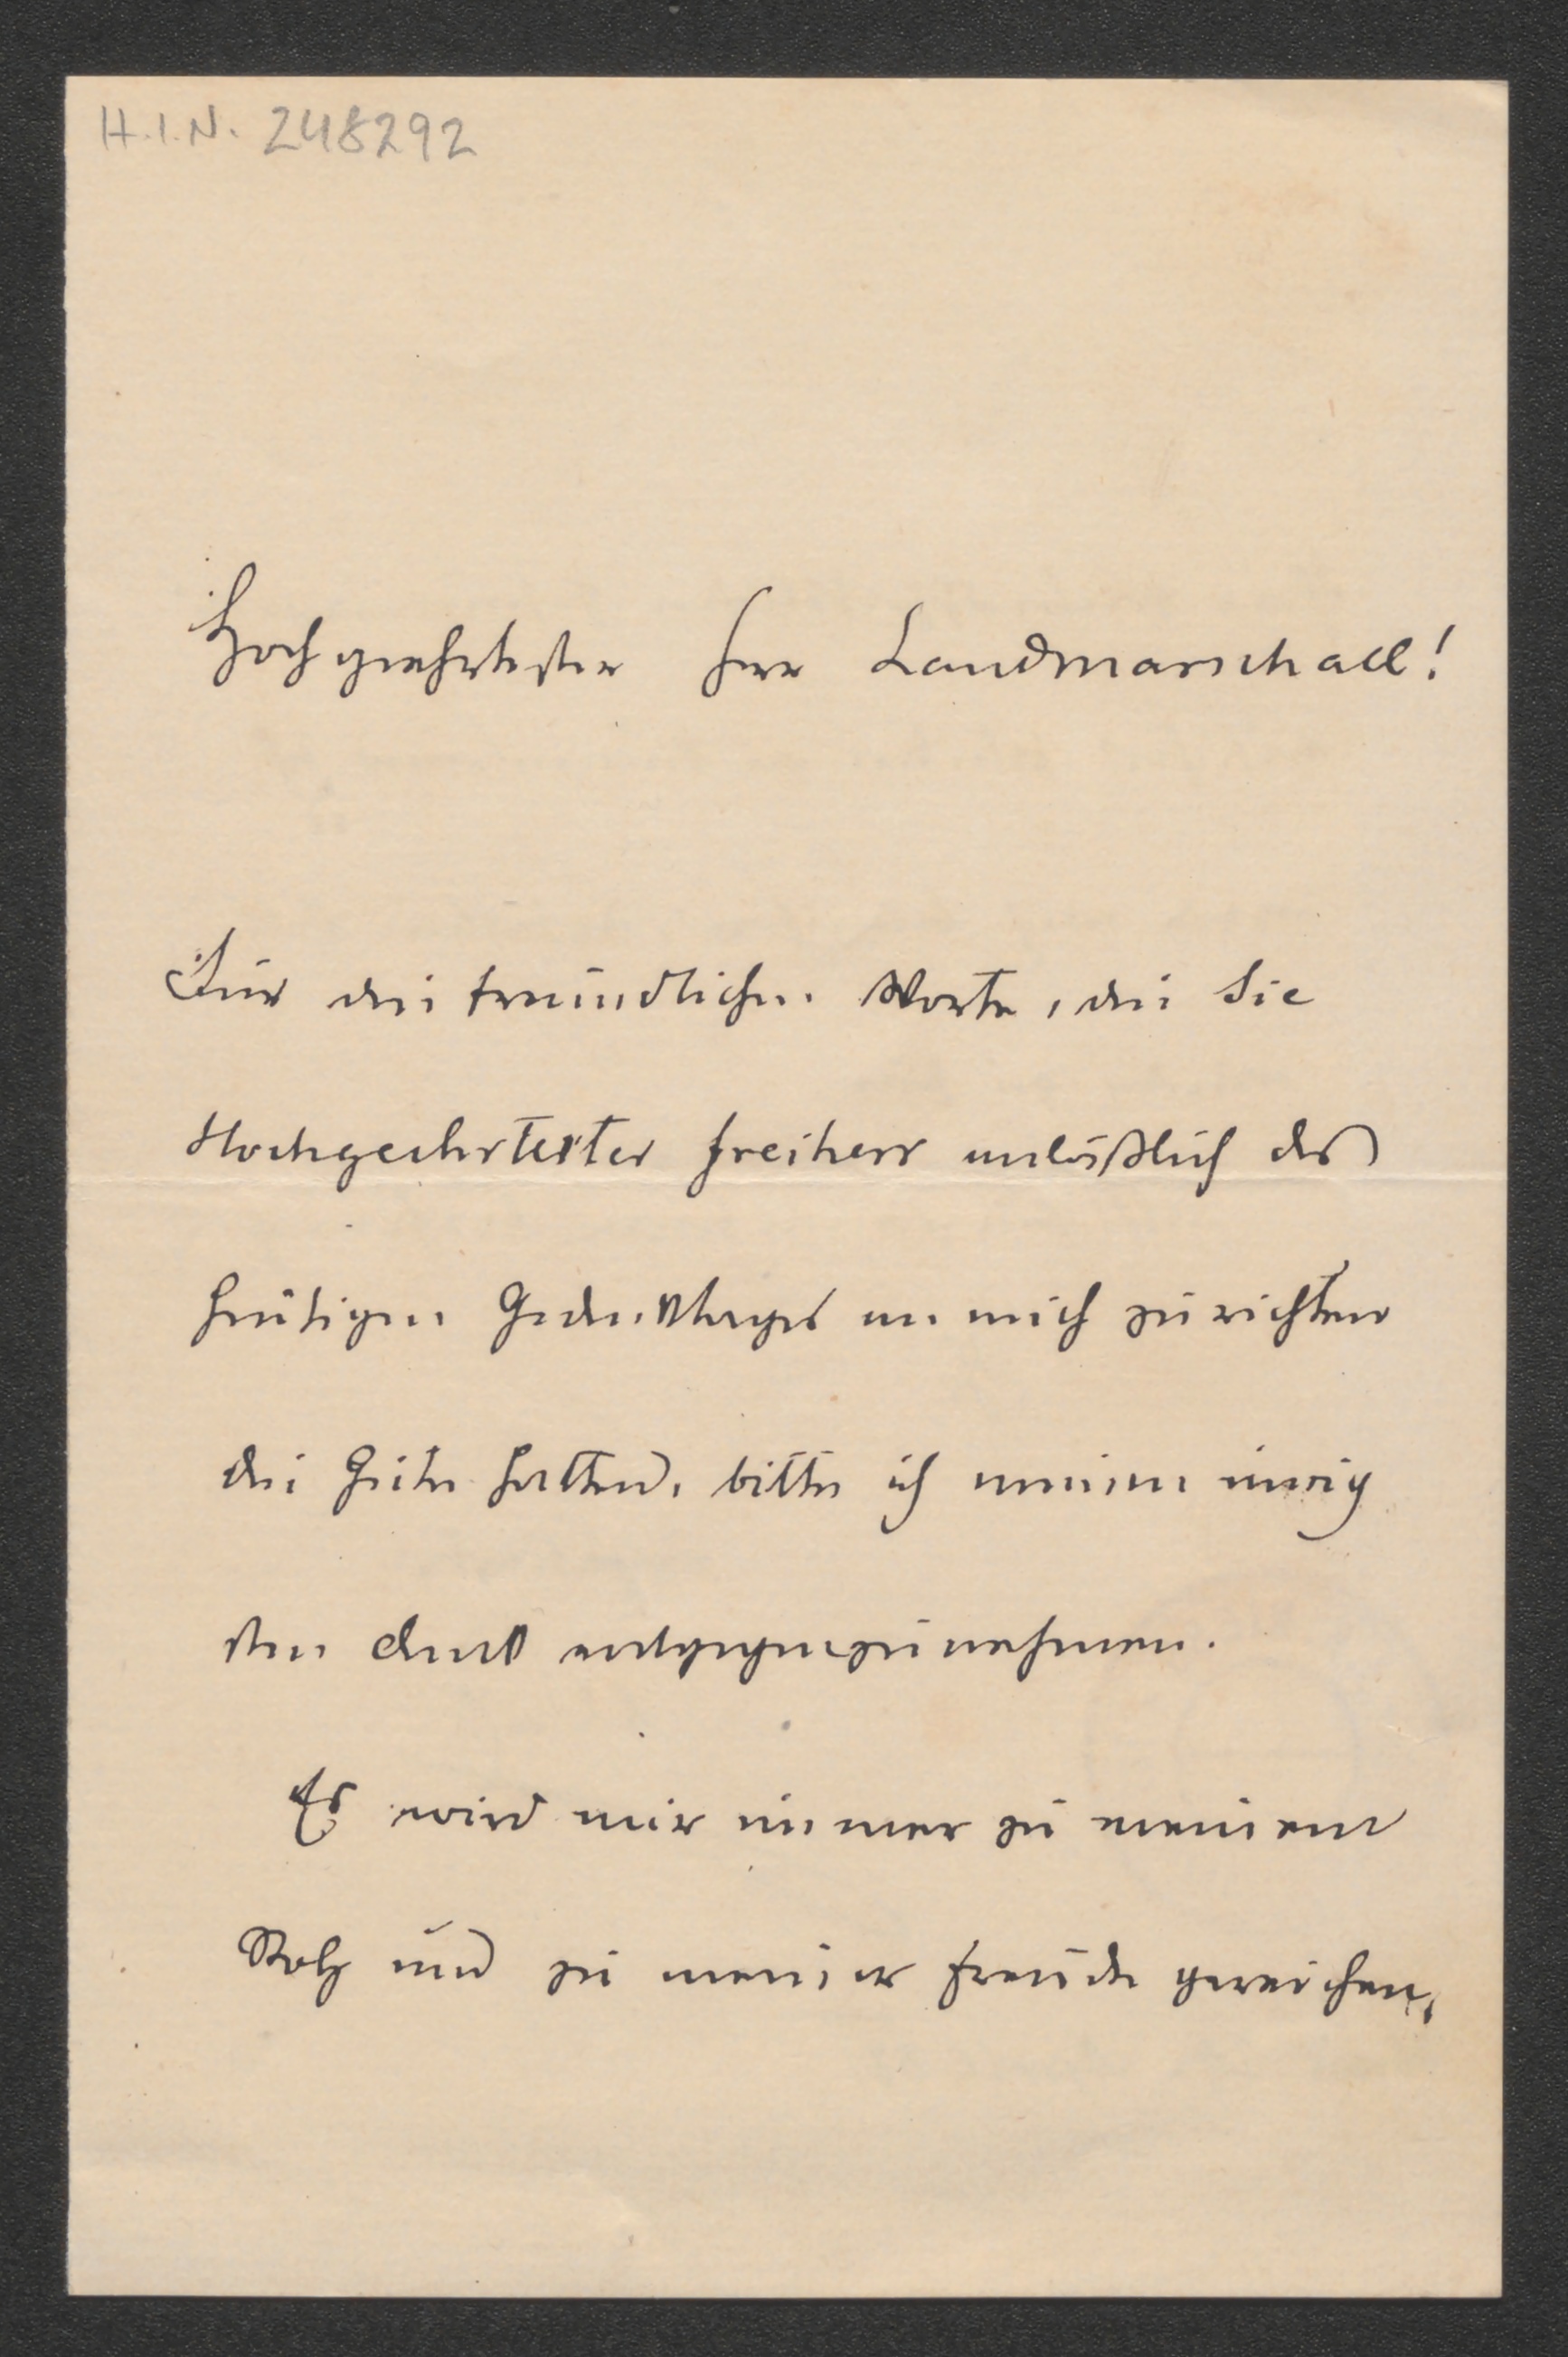 H.I.N. 248292
Hochgeehrtester Herr Landmarschall!
Für die freundlichen Worte, die Sie
Hochgeehrtester Freiherr anläßlich des
heutigen Gedenktages an mich zu richten
die Güte hatten, bitte ich meinen innig
sten Dank entgegenzunehmen.
Es wird mir immer zu meinem
Stolz und zu meiner Freude gereichen,